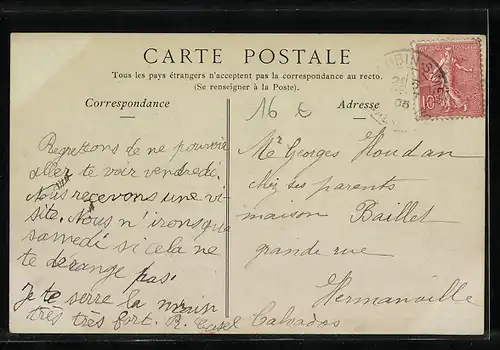 CARTE POSTALE
Tous les pays étrangers n'acceptent pas la correspondance au recto.
(Se renseigner à la Poste).
Correspondance
Adresse
16 €
10
05
Regrettons de ne pouvoir
aller te voir vendredi.
Nous recevons une vi-
site. Nous n'irons que
samedi si cela ne
te dérange pas.
Je te serre la main
très très fort. R.
Mr Georges Houdan
chez ses parents
maison Baillet
grande rue
Hermanville
Calvados